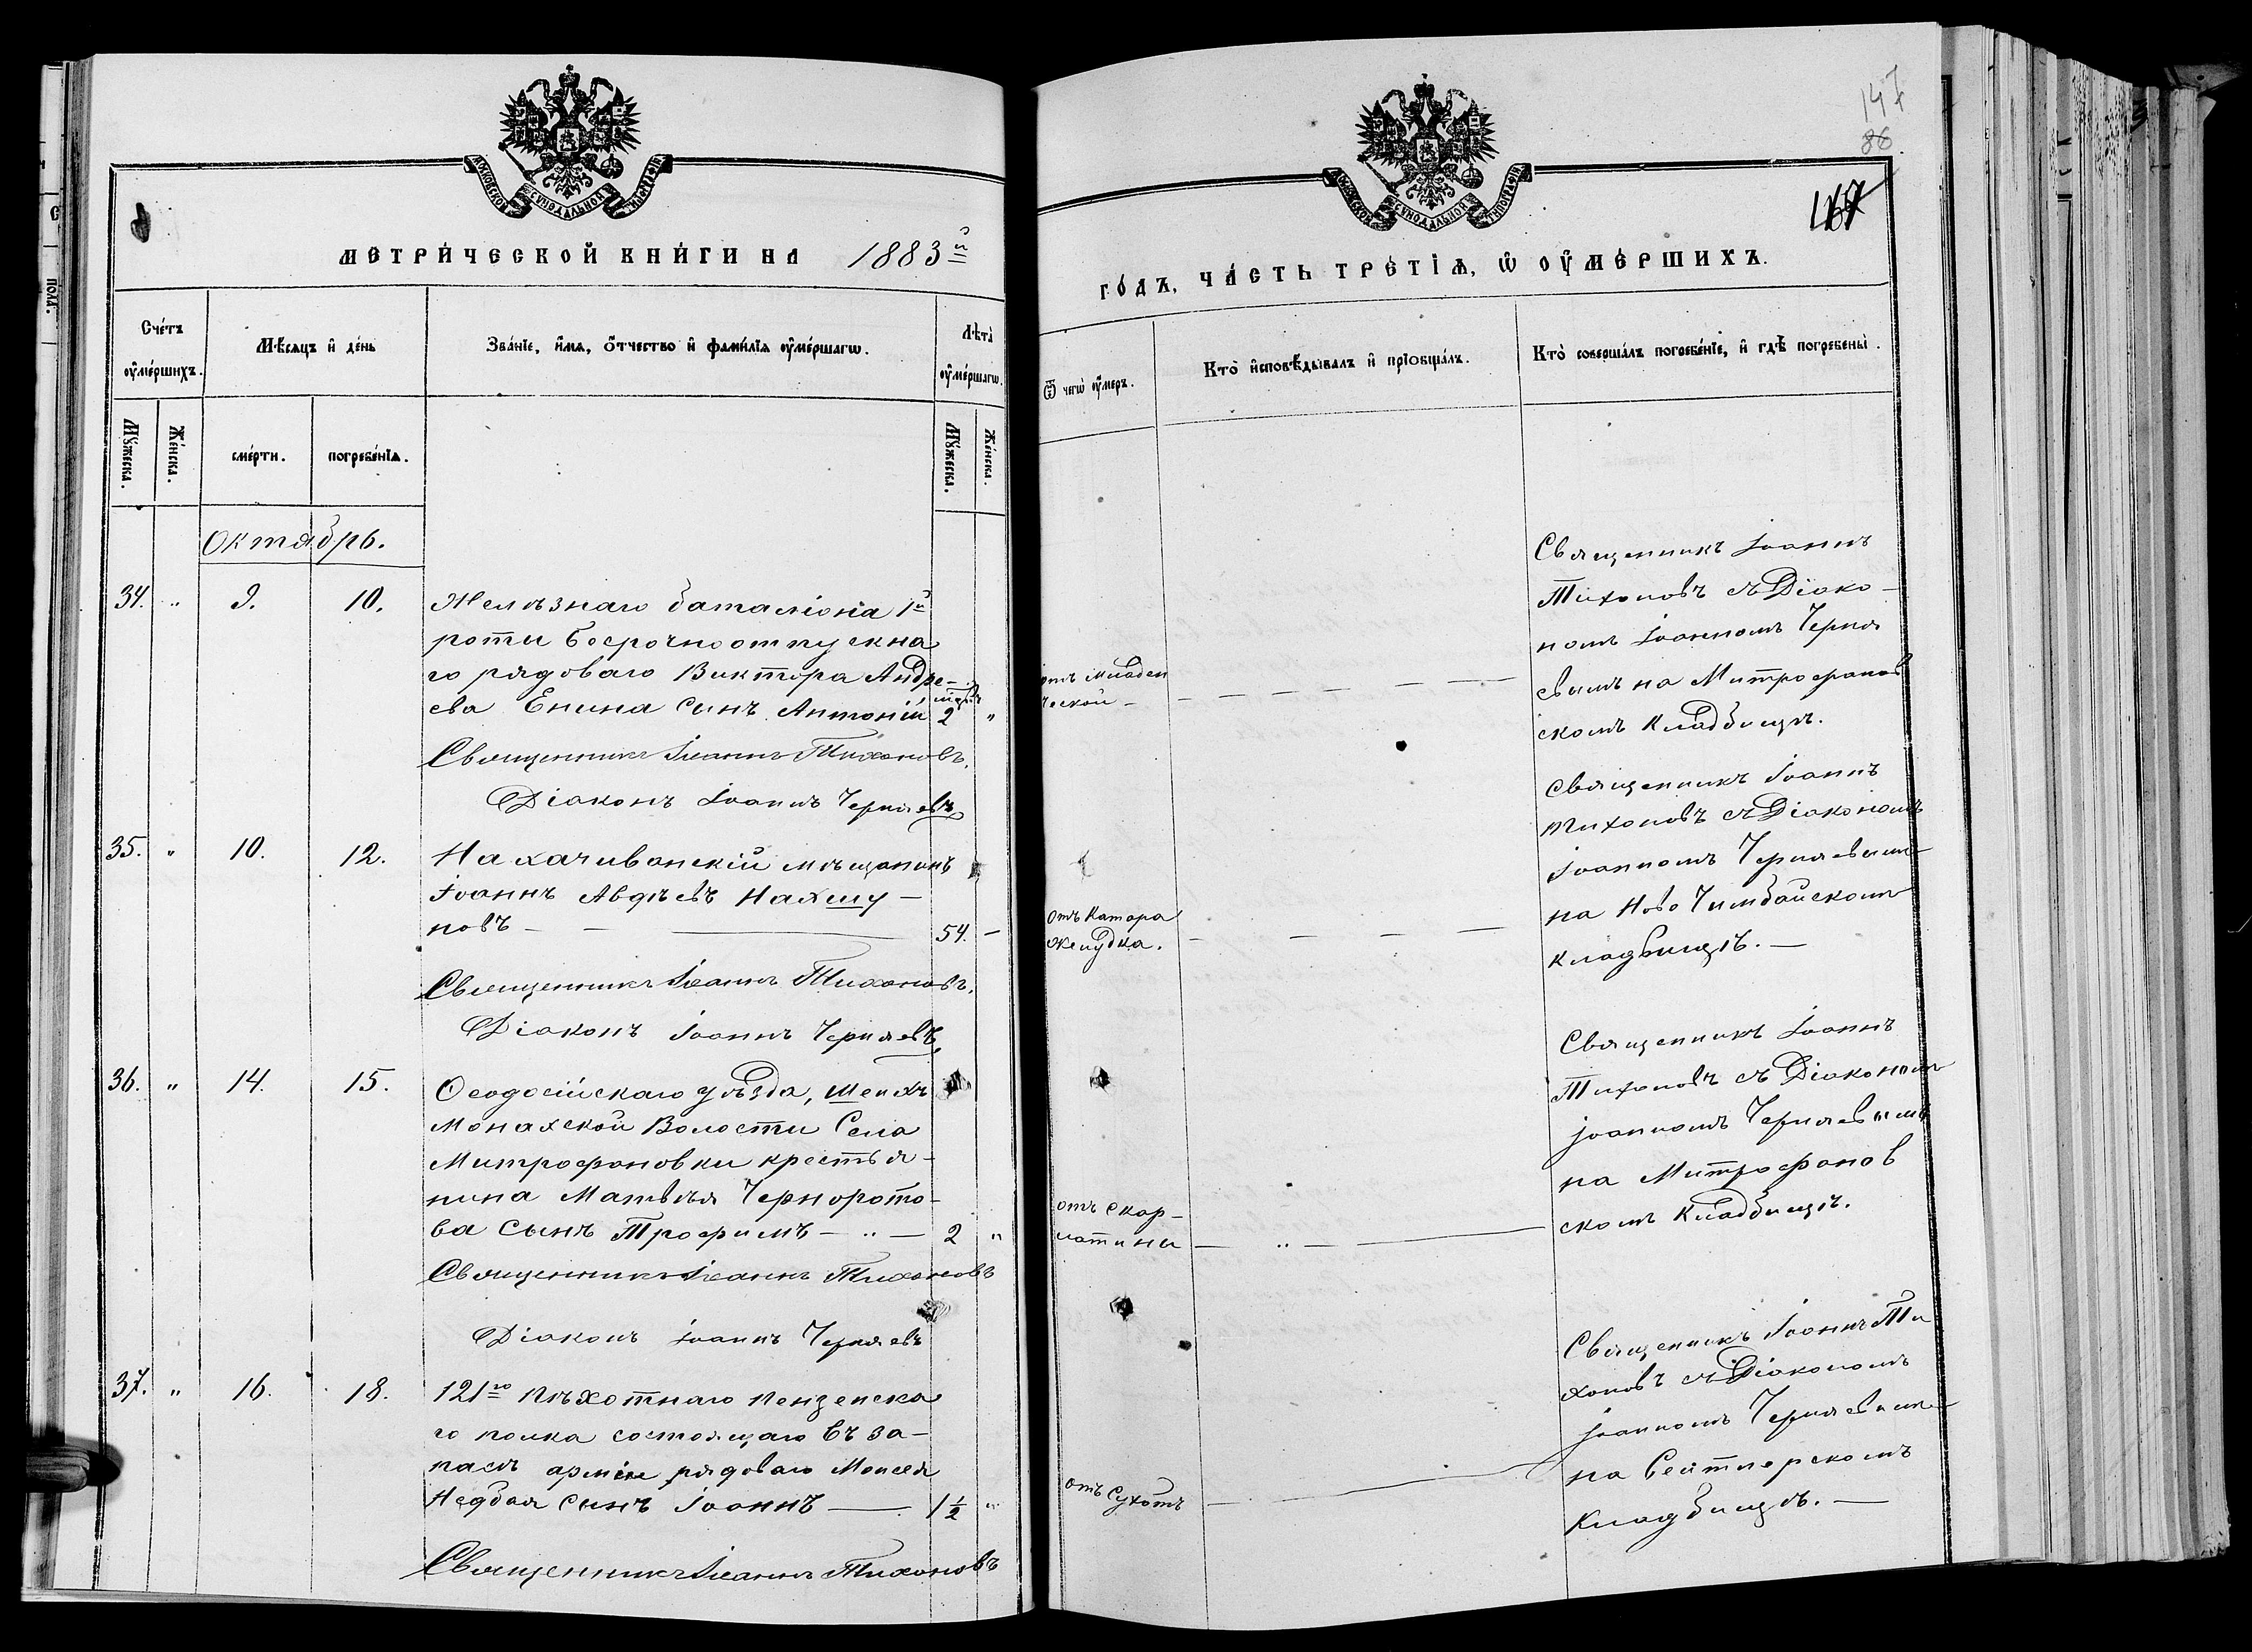 147
86
МОСКОВСКОЙ СУНОДАЛЬНОЙ ТИПОГРАФІИ
МОСКОВСКОЙ СУНОДАЛЬНОЙ ТИПОГРАФІИ
МЕТРИ́ЧЕСКОЙ КНИ́ГИ НА 1883й
ГО́ДЪ, ЧА́СТЬ ТРЕ́ТІѦ, Ѡ ОУ҆МЕ́РШИХЪ.
Сче́тъ оу҆ме́ршихъ.
Мѣ́сяцъ и҆ де́нь
Зва́нїе, и҆́мѧ, ѻ҆́тчество и҆ фами́лїѧ оу҆ме́ршагѡ.
Лѣ́та оу҆ме́ршагѡ.
Ѿ чегѡ̀ оу҆́меръ.
Кто̀ и҆сповѣ́дывалъ и҆ прїобща́лъ.
Кто̀ соверша́лъ погребе́нїе, и҆ гдѣ̀ погребены̀.
Му́жеска.
Же́нска.
сме́рти.
погребе́нїѧ.
Му́жеска.
Же́нска.
Октябрь.
34. " 9. 10.
Желѣзнаго баталіона 1й
роты безсрочноотпускна
го рядоваго Виктора Андре-
ева Енина сынъ Антоній 2 "
Священникъ Іоаннъ Тихоновъ.
Діаконъ Іоаннъ Черняевъ
отъ младен
ческой —
Священникъ Іоаннъ
Тихоновъ съ Діако-
номъ Іоанномъ Черня
евымъ на Митрофанов
скомъ Кладбищѣ.
35. " 10. 12.
Нахачиванскій мѣщанинъ
Іоаннъ Авдѣевъ Нахшу-
новъ — — 54. —
Священникъ Іоаннъ Тихоновъ.
Діаконъ Іоаннъ Черняевъ
отъ Катара
желудка.
Священникъ Іоаннъ
Тихоновъ съ Діакономъ
Іоанномъ Черняевымъ
на Ново Чимбайскомъ
кладбищѣ. —
36. " 14. 15.
Ѳеодосійскаго уѣзда, Шеихъ
Монахской Волости Села
Митрофановки крестья-
нина Матвѣя Чернорото-
ва сынъ Трофимъ — " — 2 "
Священникъ Іоаннъ Тихоновъ
Діаконъ Іоаннъ Черняевъ
отъ скар-
латины — " —
Священникъ Іоаннъ
Тихоновъ съ Діакономъ
Іоанномъ Черняевымъ
на Митрофанов
скомъ Кладбищѣ.
37. " 16. 18.
121го пѣхотнаго Пензенска
го полка состоящаго въ за-
пасѣ арміи рядоваго Моисея
Недбая сынъ Іоаннъ — 1½ "
Священникъ Іоаннъ Тихоновъ
отъ Сухотъ
Священникъ Іоаннъ Ти
хоновъ съ Діакономъ
Іоанномъ Черняевымъ
на Сейтлерскомъ
Кладбищѣ. —